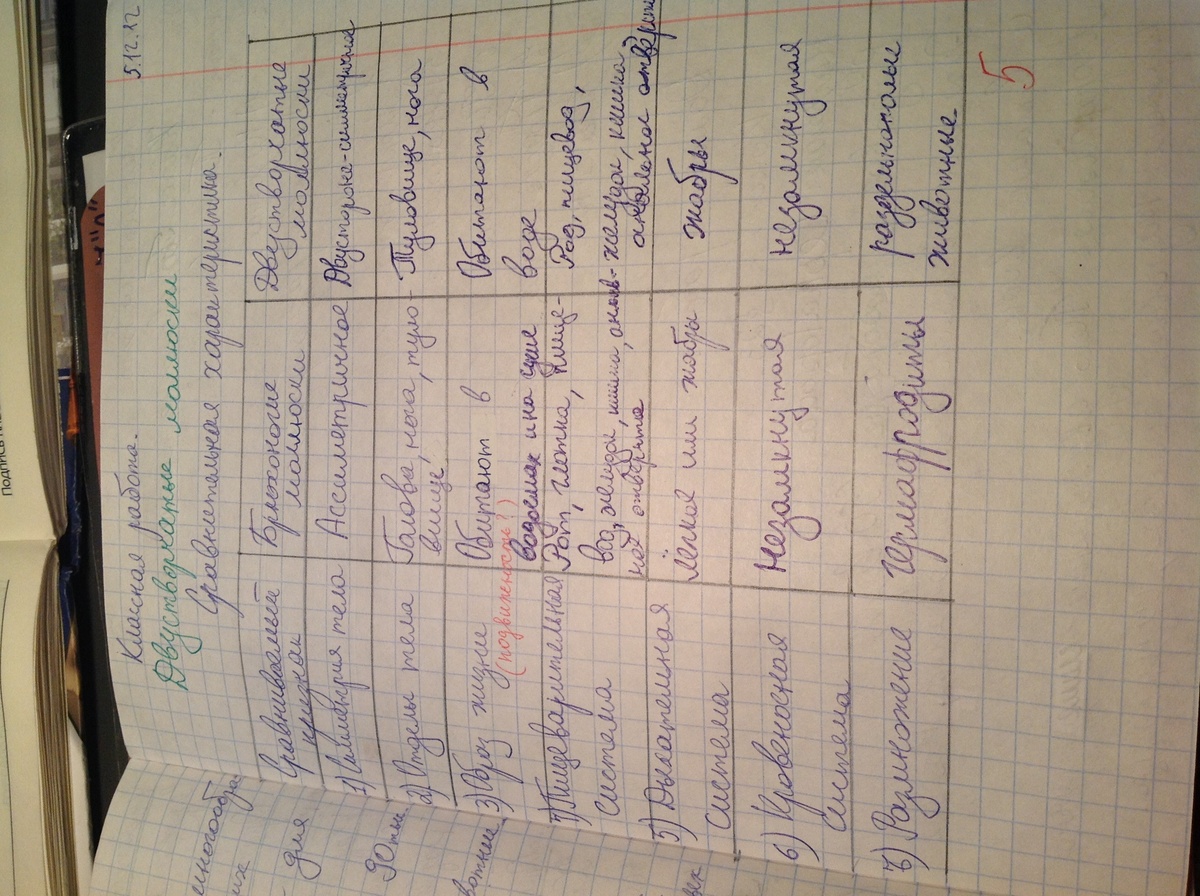 5.12.12
Класная работа.
Двустворчатые моллюски
Сравнительная характеристика.
Сравниваемый признак
Брюхоногие моллюски
Двустворчатые моллюски
1) Симметрия тела
Ассиметричное
Двусторонне-симметричное
2) Отделы тела
Голова, нога, туло-
вище
Туловище, нога
3) Образ жизни
(подвиженость?)
Обитают в
водоемах и на суше
Обитают в
воде
Пищеварительная
система
Рот, глотка, пище-
вод, желудок, кишка, аналь-
ное отверстие
Рот, пищевод,
желудок, кишка
анальное отверстие
5) Дыхательная
система
лёгкое или жабры
жабры
6) Кровеносная
система
Незамкнутая
незамкнутая
7) Размножение
гермафродиты
раздельнополые
животные
5
Подпись
для